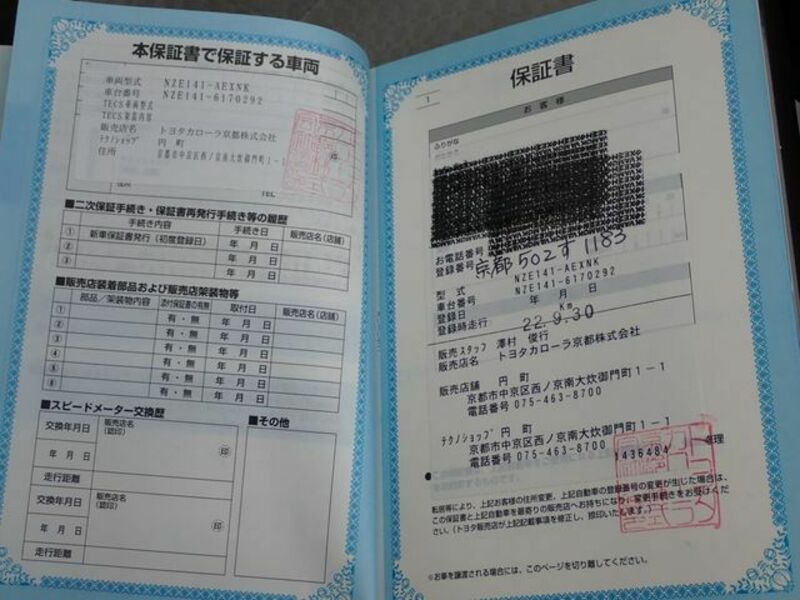 本保証書で保証する車両
車両型式 NZE141-AEXNK
車台番号 NZE141-6170292
TECS車両型式
TECS架装内容
販売店名 トヨタカローラ京都株式会社
テクノショップ 円 町
住所 京都市中京区西ノ京南大炊御門町1-1
印
住所
TEL
■二次保証手続き・保証書再発行手続き等の履歴
手続き内容 手続き日 販売店名(店舗)
① 新車保証書発行(初度登録日) 年 月 日
② 年 月 日
③ 年 月 日
■販売店装着部品および販売店架装物等
部品/架装物内容 添付保証書の有無 取付日 販売店名(店舗)
① 有・無 年 月 日
② 有・無 年 月 日
③ 有・無 年 月 日
④ 有・無 年 月 日
⑤ 有・無 年 月 日
⑥ 有・無 年 月 日
■スピードメーター交換歴
交換年月日 販売店名
(認印)
年 月 日 印
走行距離
交換年月日 販売店名
(認印)
年 月 日 印
走行距離
■その他
保証書
1
お客様
ふりがな
お電話番号
登録番号 京都502す1183
型 式 NZE141-AEXNK
車台番号 NZE141-6170292
登録日 年 月 日
登録時走行 Km
22.9.30
販売スタッフ 澤村 俊行
販売店名 トヨタカローラ京都株式会社
販売店舗 円 町
京都市中京区西ノ京南大炊御門町1-1
電話番号 075-463-8700
テクノショップ 円 町
京都市中京区西ノ京南大炊御門町1-1
電話番号 075-463-8700
1436484
修理
転居等により、上記お客様の住所変更、上記自動車の登録番号の変更が生じた場合は、
この保証書と上記自動車を最寄りの販売店へお持ちになり、変更手続きをお受けくだ
さい。(トヨタ販売店が上記記載事項を修正し、捺印いたします。)
※お車を譲渡される場合には、このページを切り離してください。